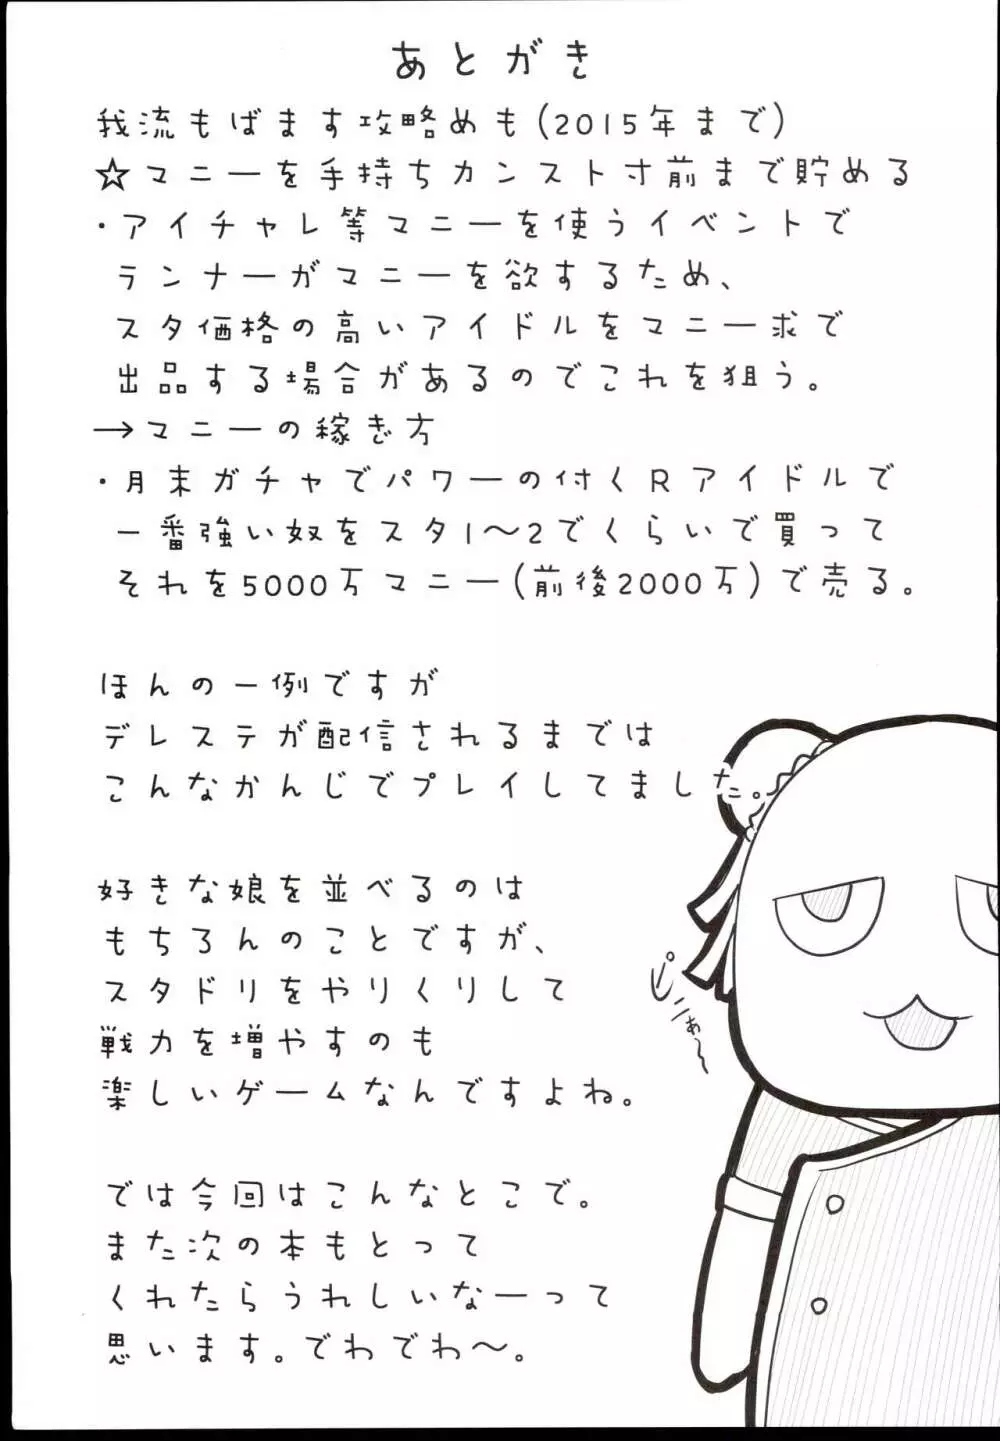 あとがき
我流もばます攻略めも(2015年まで)
☆マニーを手持ちカンスト寸前まで貯める
・アイチャレ等マニーを使うイベントで
ランナーがマニーを欲するため、
スタ価格の高いアイドルをマニー求で
出品する場合があるのでこれを狙う。
→マニーの稼ぎ方
・月末ガチャでパワーの付くRアイドルで
一番強い奴をスタ1〜2でくらいで買って
それを5000万マニー(前後2000万)で売る。
ほんの一例ですが
デレステが配信されるまでは
こんなかんじでプレイしてました。
好きな娘を並べるのは
もちろんのことですが、
スタドリをやりくりして
戦力を増やすのも
楽しいゲームなんですよね。
ぴ
にぁぁ〜
では今回はこんなとこで。
また次の本もとって
くれたらうれしいなーって
思います。でわでわ〜。